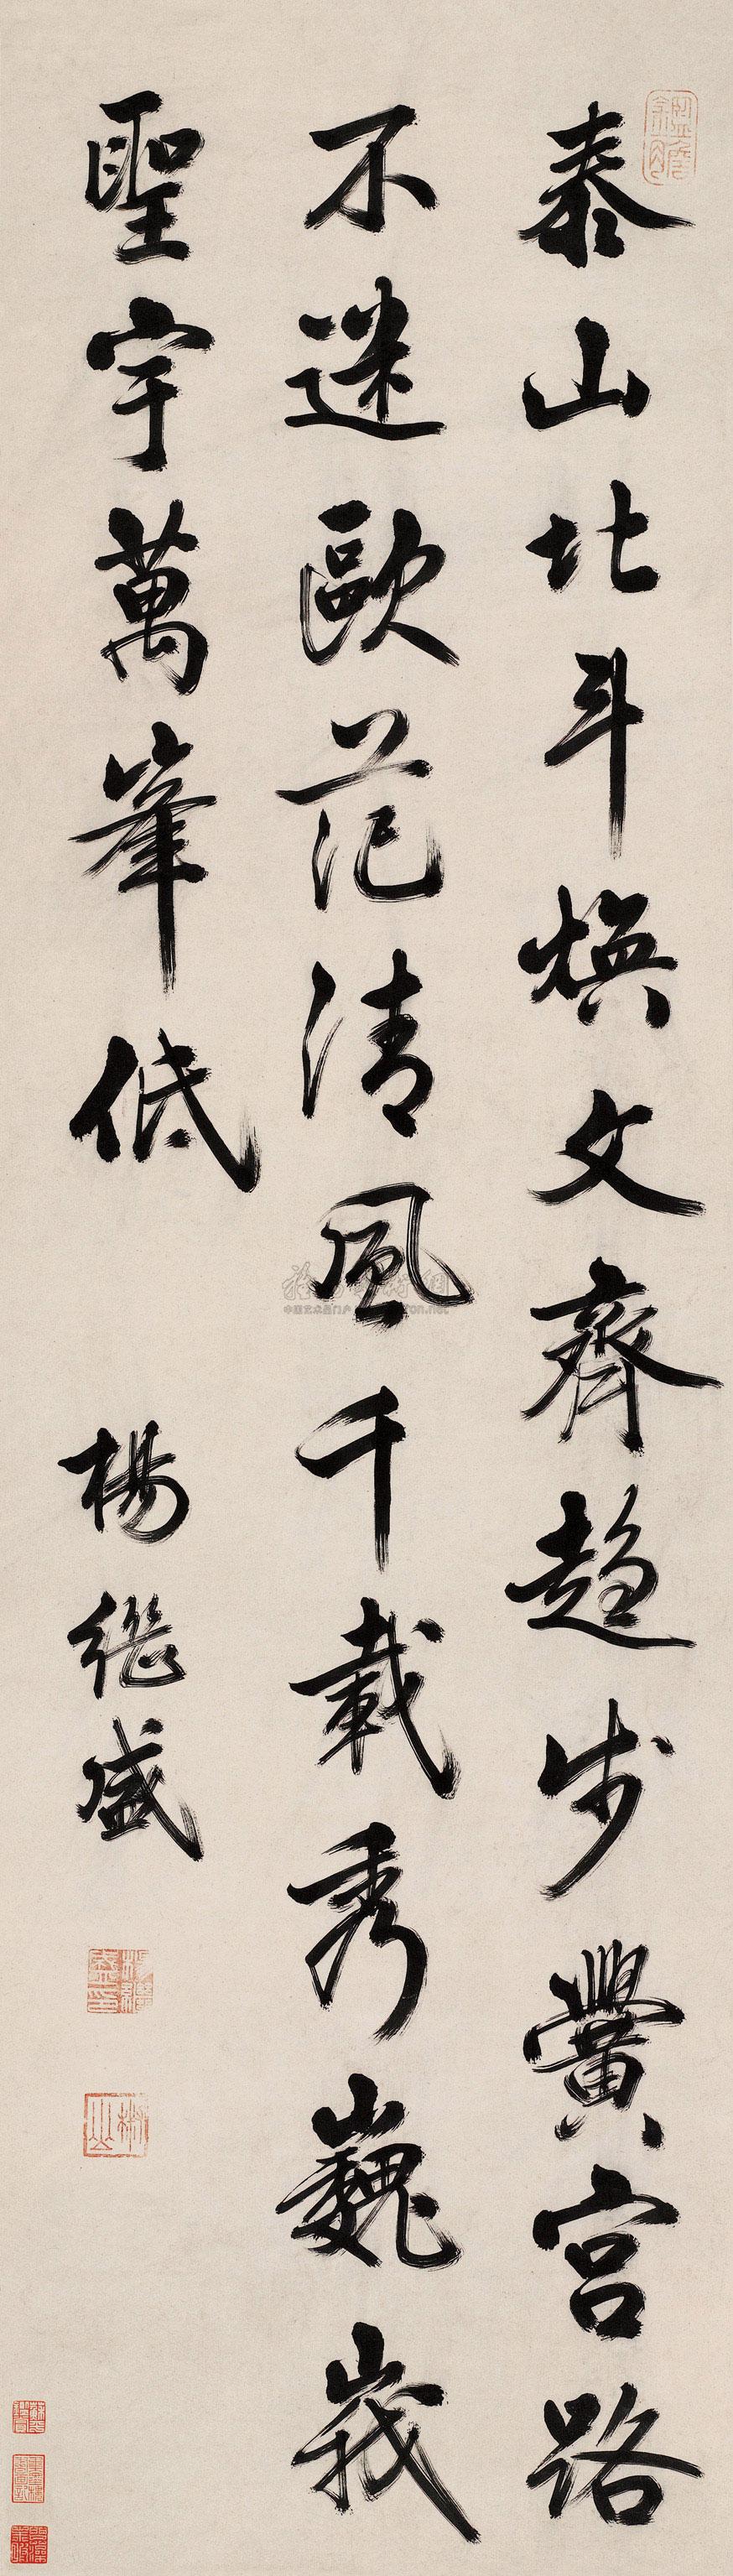 泰山北斗煥文齊趨步黌宮路
不迷歐范清風千載秀巍峩
聖宇萬峯低
楊継盛